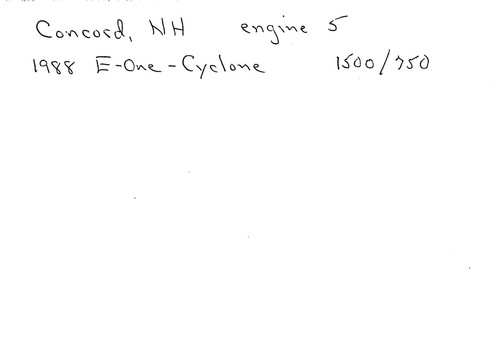 Concord, NH engine 5
1988 E-One-Cyclone 1500/750